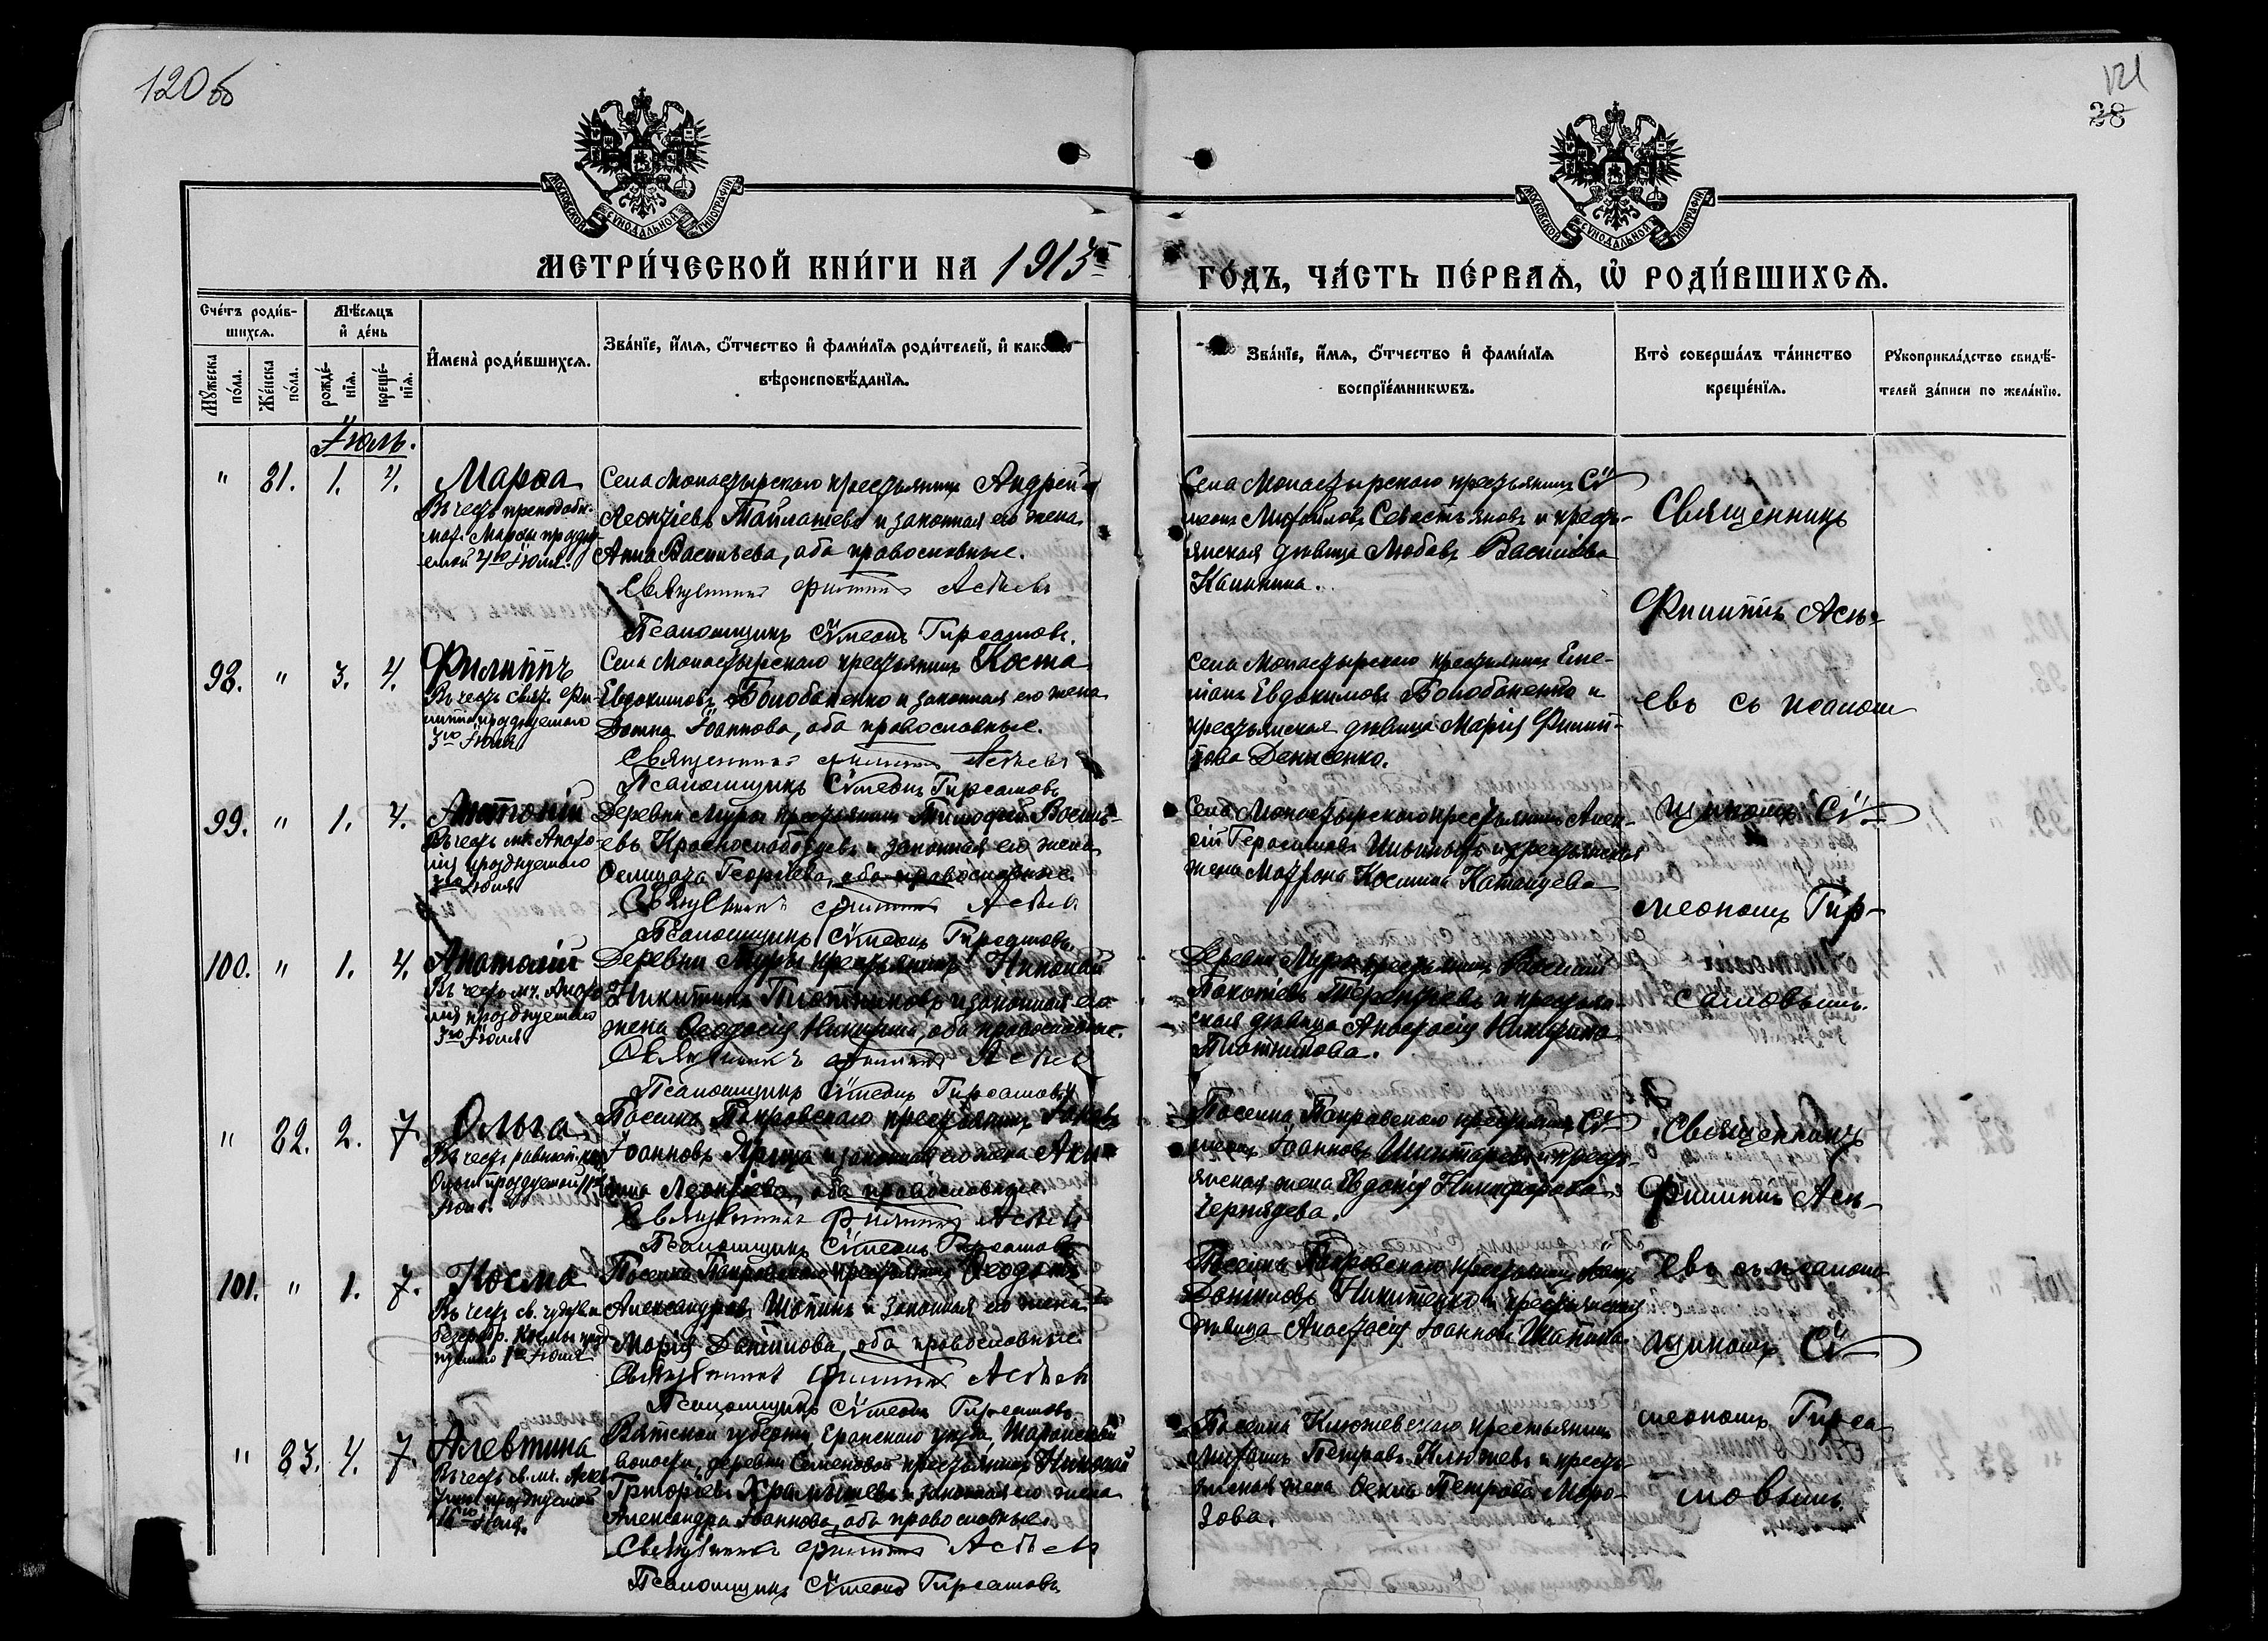 120 об
121
38
МОСКОВСКОЙ СѴНОДАЛЬНОЙ ТИПОГРАФІИ
МОСКОВСКОЙ СѴНОДАЛЬНОЙ ТИПОГРАФІИ
МЕТРИ́ЧЕСКОЙ КНИ́ГИ НА 1913
ГО́ДЪ, ЧА́СТЬ ПЕ́РВАѦ, Ѿ РОДИ́ВШИХСѦ.
Сче́тъ роди́в-
шихсѧ.
Мѣ́сѧцъ
и҆ де́нь
Мꙋ́жеска
по́ла.
Же́нска
по́ла.
рожде́-
нїѧ.
креще́-
нїѧ.
И҆мена̀ роди́вшихсѧ.
Зва́нїе, и҆́мѧ, ѻ҆́тчество и҆ фами́лїѧ роди́телей, и҆ како́
вѣроисповѣ́данїѧ.
Зва́нїе, и҆́мѧ, ѻ҆́тчество и҆ фами́лїѧ
воспрїе́мникѡвъ.
Кто̀ соверша́лъ та́инство
креще́нїѧ.
Рꙋкоприкла́дство свидѣ́-
телей за́писи по жела́нїю.
Іюль.
" 81. 1. 4. Марѳа
Въ честь преподобн.
мат. Марѳы праздну-
емой 4го Іюля.
Села Монастырскаго крестьянинъ Андрей
Леонтіевъ Тайлашевъ и законная его жена
Анна Васильева, оба православные.
Священникъ Филиппъ Асѣевъ
Псаломщикъ Сѵмеонъ Гирсамовъ.
Села Монастырскаго крестьянинъ Сѵ-
меонъ Михаиловъ Севастьяновъ и кресть-
янская дѣвица Любовь Василіева
Калинина.
Священникъ
Филиппъ Асѣ-
98. " 3. 4. Филиппъ
Въ честь свят. Фи-
липпа празднуемаго
3го Іюля
Села Монастырскаго крестьянинъ Косма
Евдокимовъ Болобаненко и законная его жена
Домна Іоаннова, оба православные.
Священникъ Филиппъ Асѣевъ
Псаломщикъ Сѵмеонъ Гирсамовъ
Села Монастырскаго крестьянинъ Еме-
ліанъ Евдокимовъ Болобаненко и
крестьянская дѣвица Марія Филип-
пова Денисенко.
евъ съ псалом-
99. " 1. 4. Анатолій
Въ честь мч. Анато-
лія празднуемаго
3го Іюля
Деревни Муры крестьянинъ Тимофей Василь-
евъ Краснослободцевъ и законная его жена
Ѳелицата Георгіева, оба православные.
Священникъ Филиппъ Асѣевъ
Псаломщикъ Сѵмеонъ Гирсамовъ
Села Монастырскаго крестьянинъ Алек-
сій Герасимовъ Ильиныхъ и крестьянская
жена Матрона Космина Катанцева
щикомъ Сѵ-
меономъ Гир-
100. " 1. 4. Анатолій
Въ честь мч. Анато-
лія празднуемаго
3го Іюля
Деревни Муры крестьянинъ Николай
Никитинъ Плотниковъ и законная его
жена Ѳеодосія Никитина, оба православные.
Священникъ Филиппъ Асѣевъ
Псаломщикъ Сѵмеонъ Гирсамовъ
Деревни Муры крестьянинъ Василій
Терентіевъ и крестьян-
ская дѣвица Анастасія Никитина
Плотникова.
самовымъ.
" 82. 2. 7. Ольга
Въ честь равноап. кн.
Ольги празднуемой 11го
Іюля.
Поселка Покровскаго крестьянинъ Іаковъ
Іоанновъ Ярица и законная его жена Аки-
лина Леонтіева, оба православные.
Священникъ Филиппъ Асѣевъ
Псаломщикъ Сѵмеонъ Гирсамовъ
Поселка Покровскаго крестьянинъ Сѵ-
меонъ Іоанновъ и кресть-
янская жена Евдокія Никифорова
Чернядева.
Священникъ
Филиппъ Асѣ-
101. " 1. 7. Косма
Въ честь св. чудотв. и
безсребр. Космы праз-
днуемаго 1го Іюля
Поселка Покровскаго крестьянинъ Ѳеодотъ
Александровъ Шапинъ и законная его жена
Марія Даніилова, оба православные.
Священникъ Филиппъ Асѣевъ
Псаломщикъ Сѵмеонъ Гирсамовъ
Поселка Покровскаго крестьянинъ
Даниловъ Никитенко и крестьянская
дѣвица Анастасія Іоаннова Шапина.
евъ съ псалом-
щикомъ Сѵ-
" 83. 4. 7. Алевтина
Въ честь св. мч. Алев-
тины празднуемой
16го Іюля.
Вятской губерніи Яранскаго уѣзда, Шарангской
волости, деревни Семеновой крестьянинъ Николай
Григоріевъ Храмцевъ и законная его жена
Александра Іоаннова, оба православные.
Священникъ Филиппъ Асѣевъ
Псаломщикъ Сѵмеонъ Гирсамовъ
Поселка Ключевскаго крестьянинъ
Михаилъ Петровъ Ключевъ и кресть-
янская жена Ѳекла Петрова Моро-
зова.
меономъ Гирса-
мовымъ